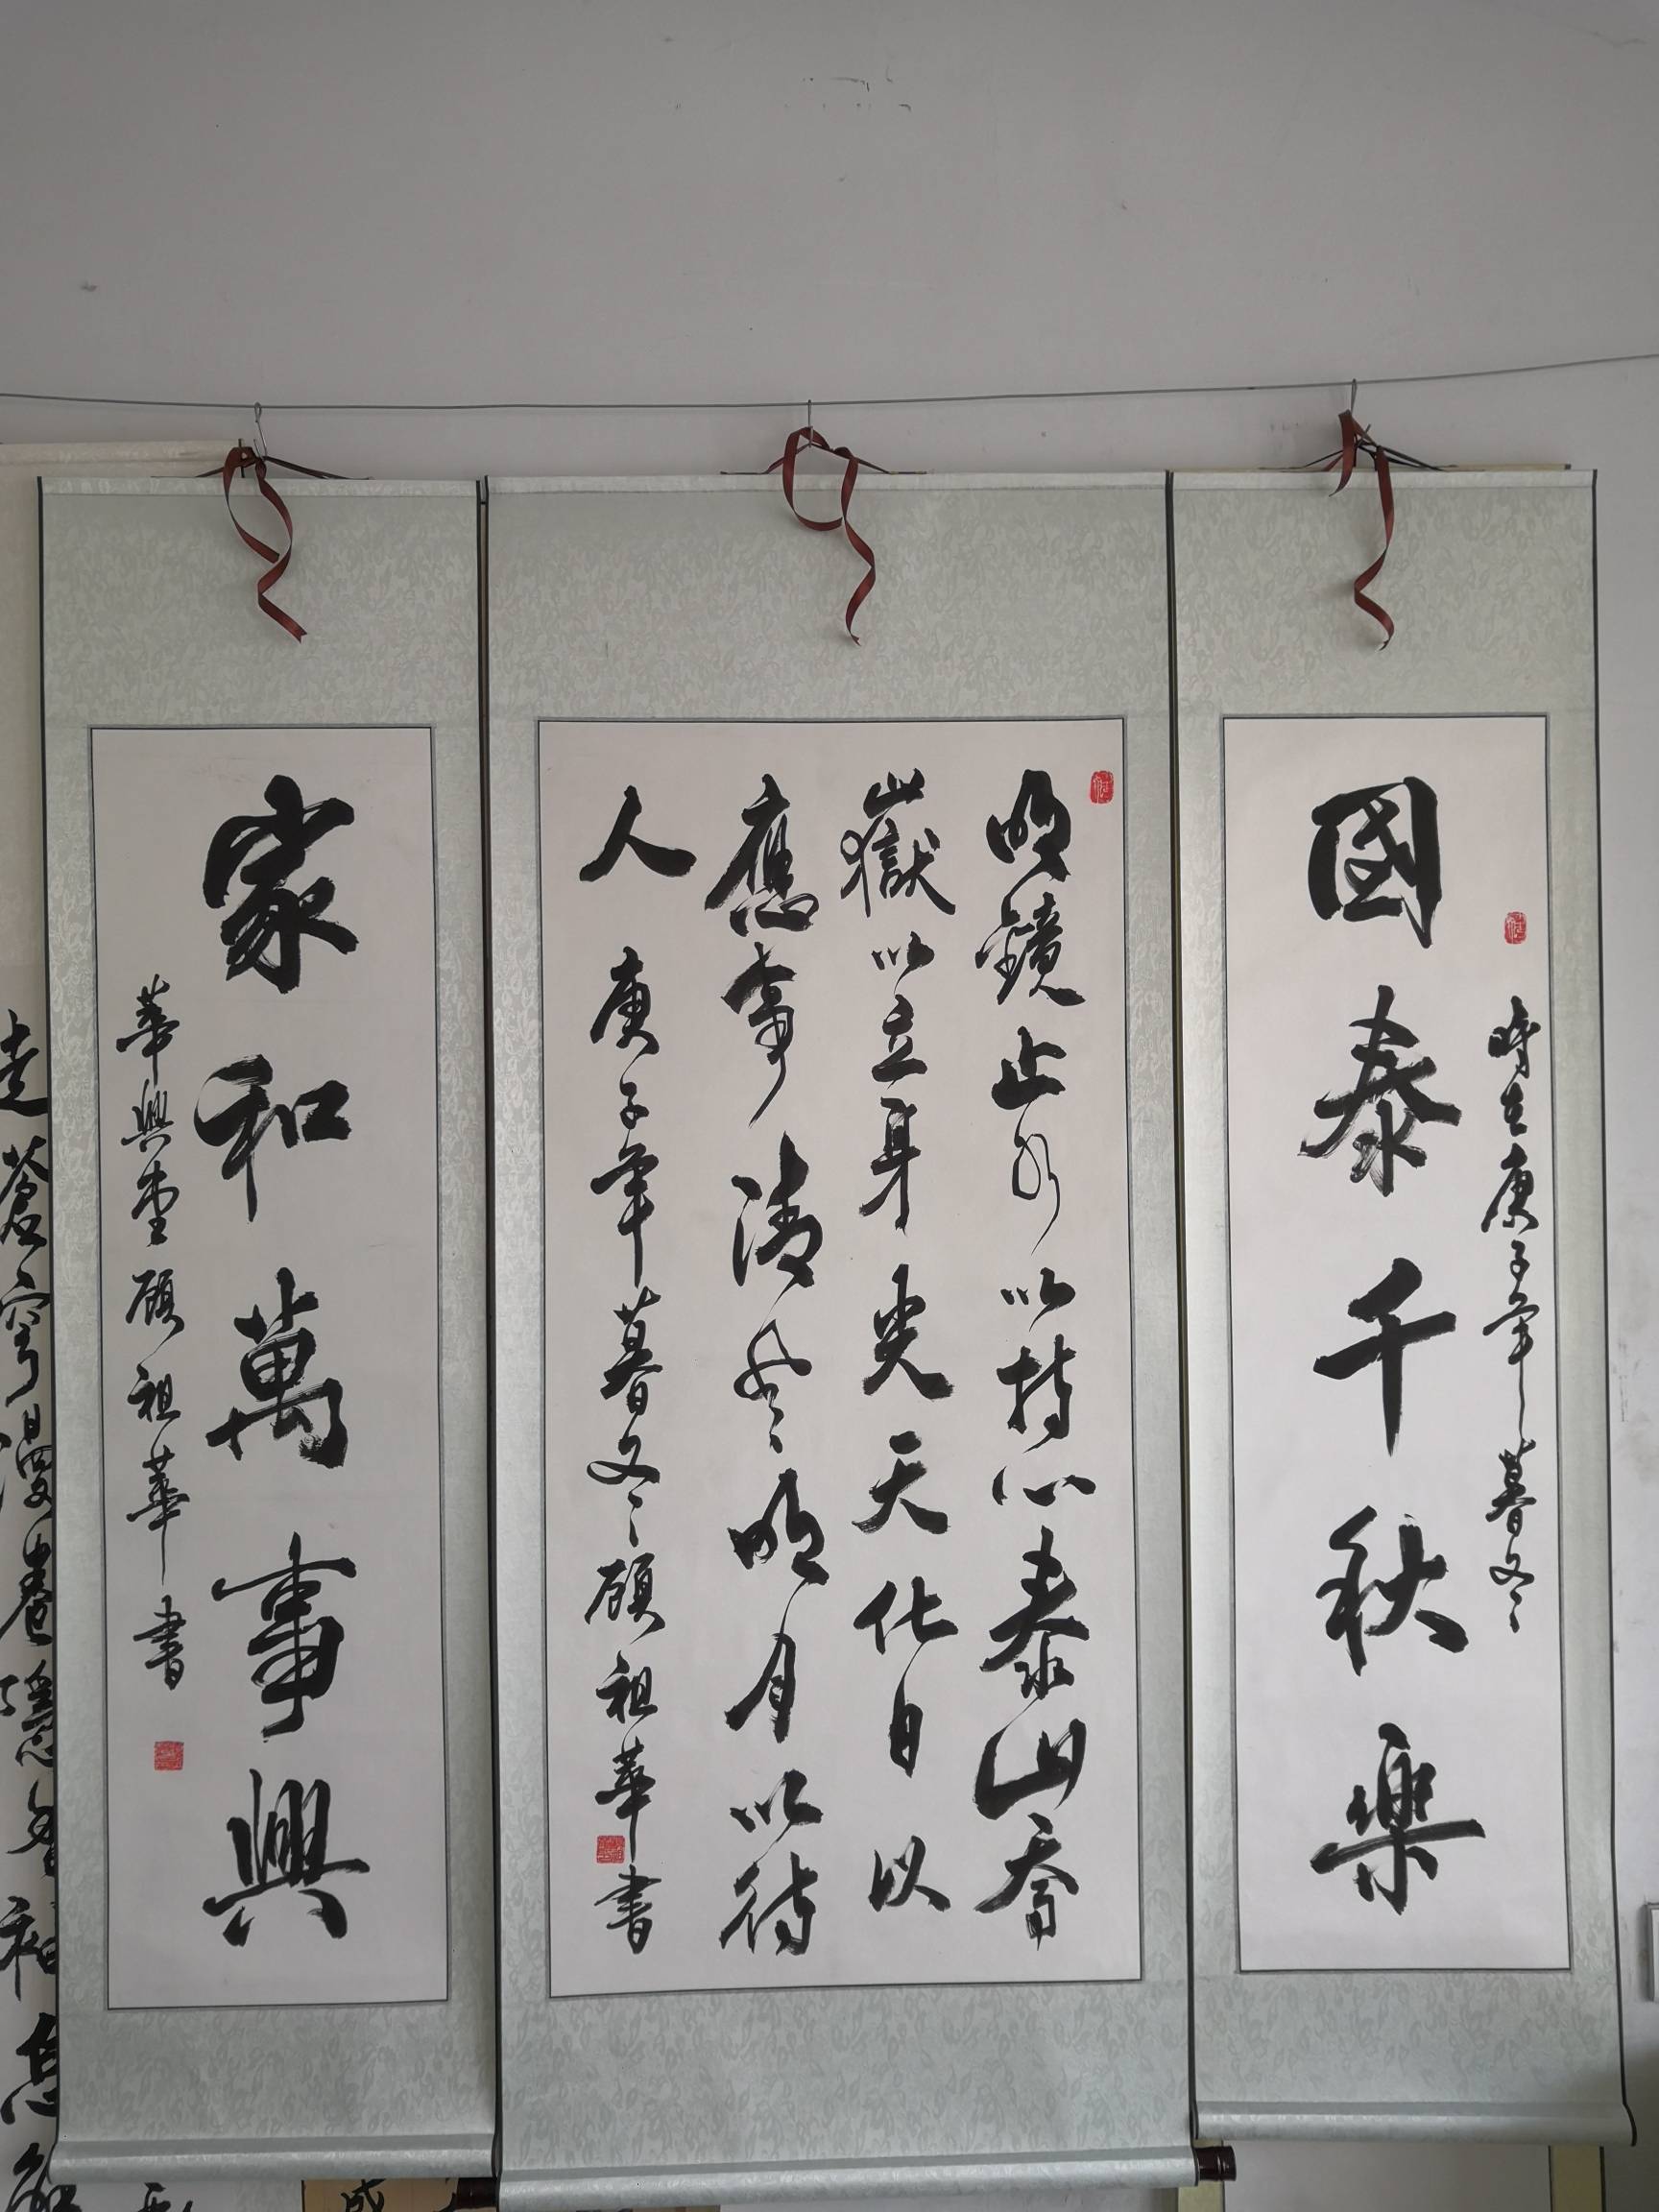 時在庚子年暮冬
國泰千秋樂
明鏡止水以持心泰山喬
嶽以立身光天化日以
應事清風明月以待
人 庚子年暮冬顧祖華書
家和萬事興
華興堂顧祖華書